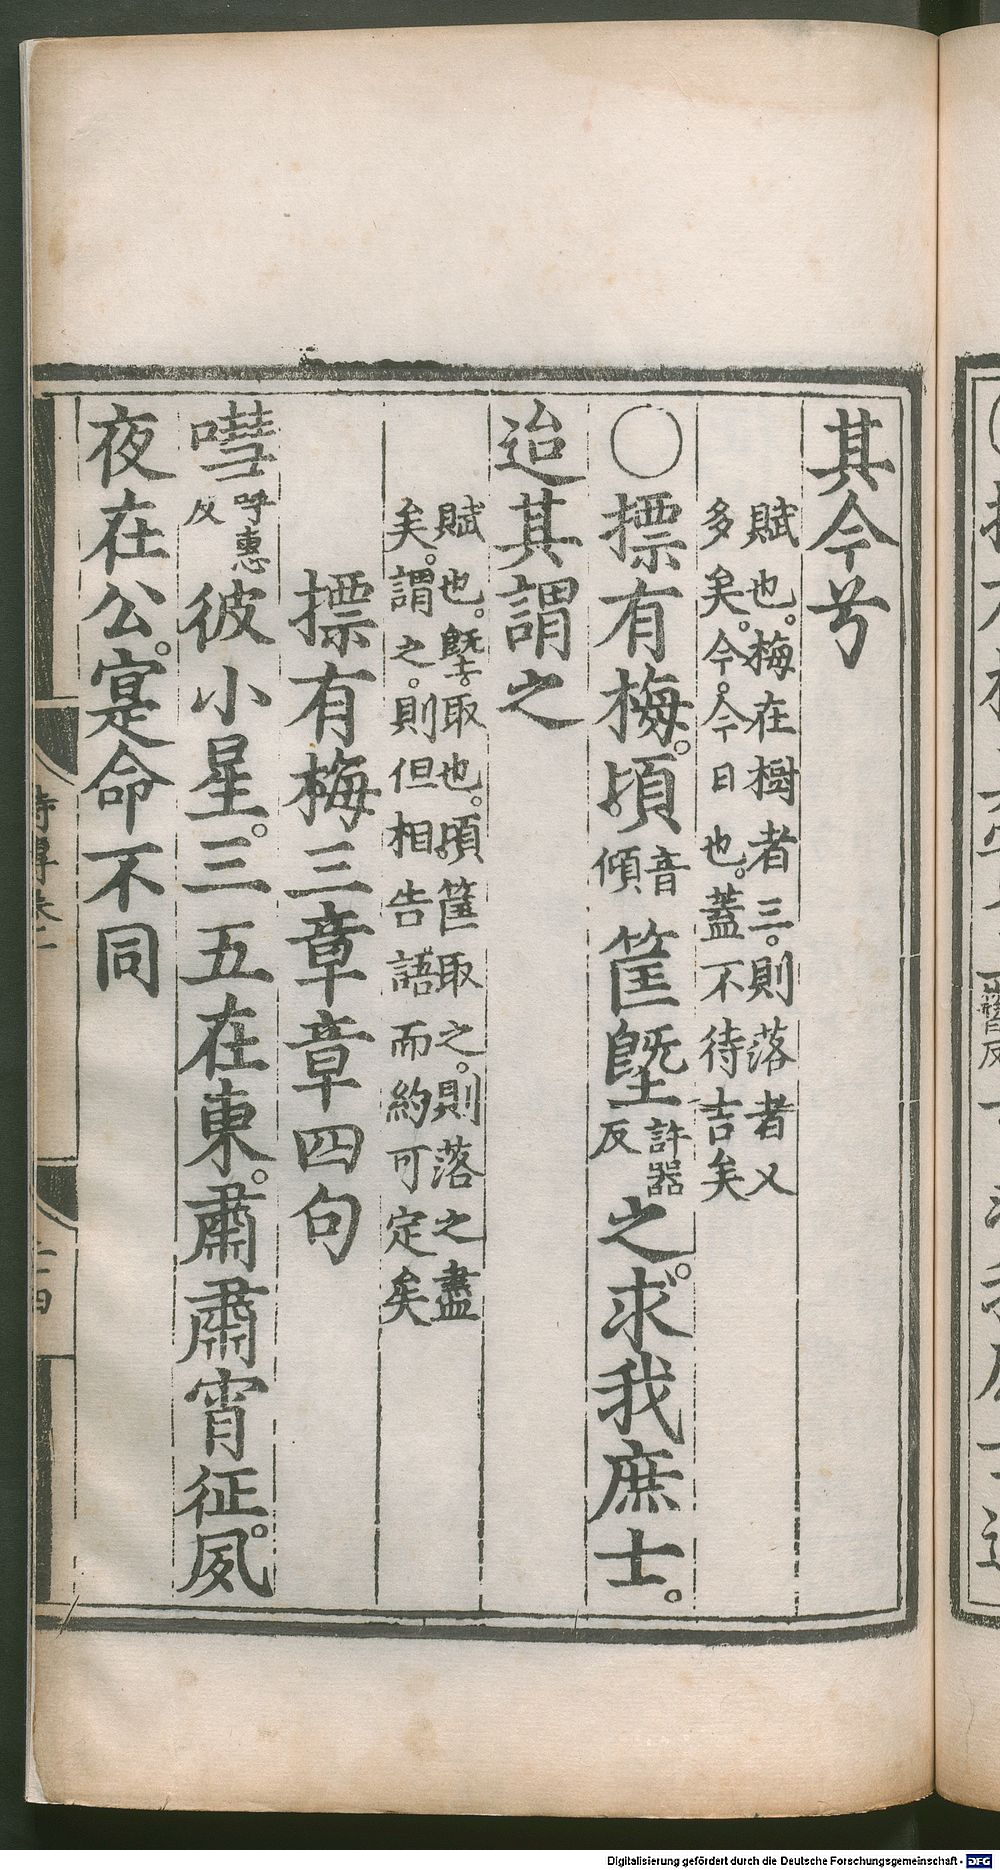 其今兮
賦也。梅在樹者三。則落者又
多矣。今。今日也。蓋不待吉矣
○摽有梅。頃音傾筐塈許器反之。求我庶士。
迨其謂之
賦也。塈。取也。頃筐取之。則落之盡
矣。謂之。則但相告語而約可定矣
摽有梅三章章四句
嘒呼惠反彼小星。三五在東。肅肅宵征。夙
夜在公。寔命不同
詩傳卷一
二十四
Digitalisierung gefördert durch die Deutsche Forschungsgemeinschaft - DFG